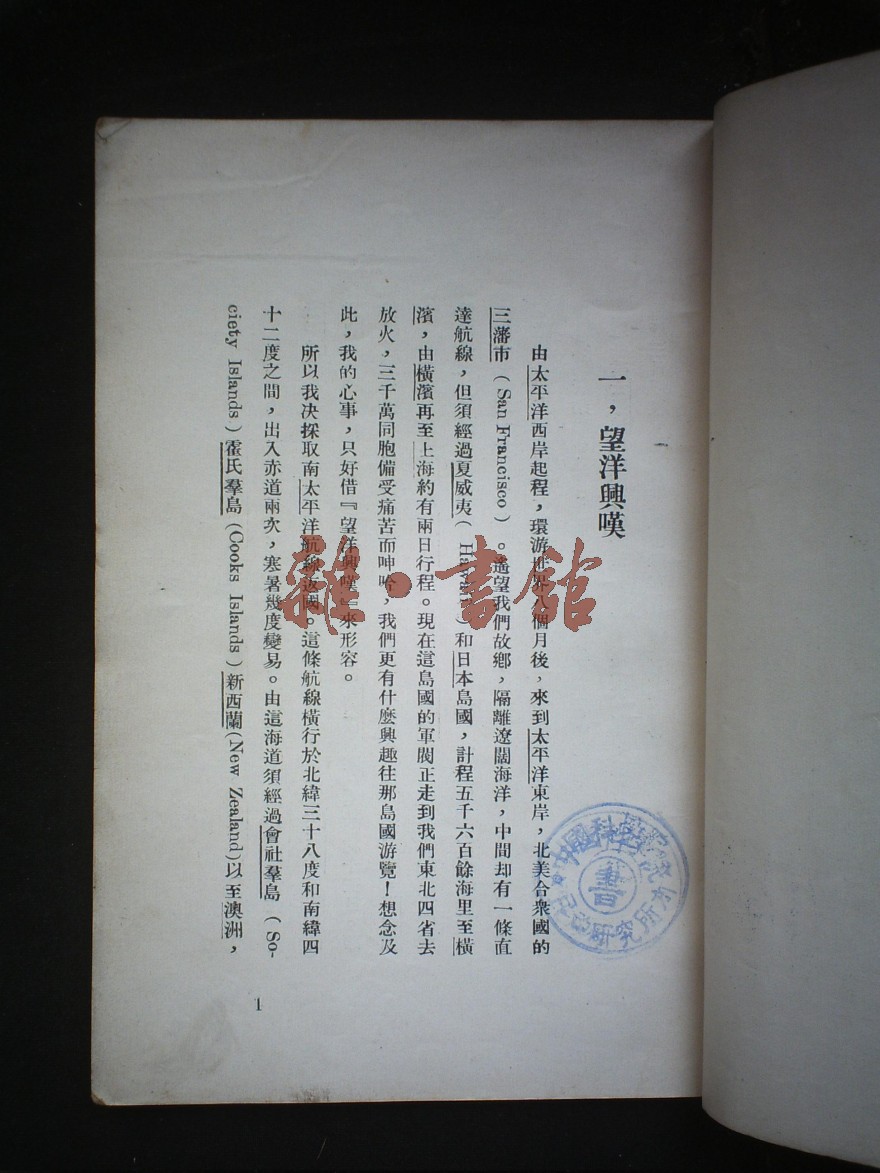 一，望洋興嘆
由太平洋西岸起程，環游世界八個月後，來到太平洋東岸，北美合衆國的
三藩市（San Francisco）。遙望我們故鄉，隔離遼闊海洋，中間却有一條直
達航線，但須經過夏威夷（Hawaii）和日本島國，計程五千六百餘海里至橫
濱，由橫濱再至上海約有兩日行程。現在這島國的軍閥正走到我們東北四省去
放火，三千萬同胞備受痛苦而呻吟，我們更有什麼興趣往那島國游覽！想念及
此，我的心事，只好借『望洋興嘆』來形容。
所以我决採取南太平洋航線返國。這條航線橫行於北緯三十八度和南緯四
十二度之間，出入赤道兩次，寒暑幾度變易。由這海道須經過會社羣島（So-
ciety Islands）霍氏羣島(Cooks Islands）新西蘭(New Zealand)以至澳洲，
1
雜·書館
中國科學院
研究所
書